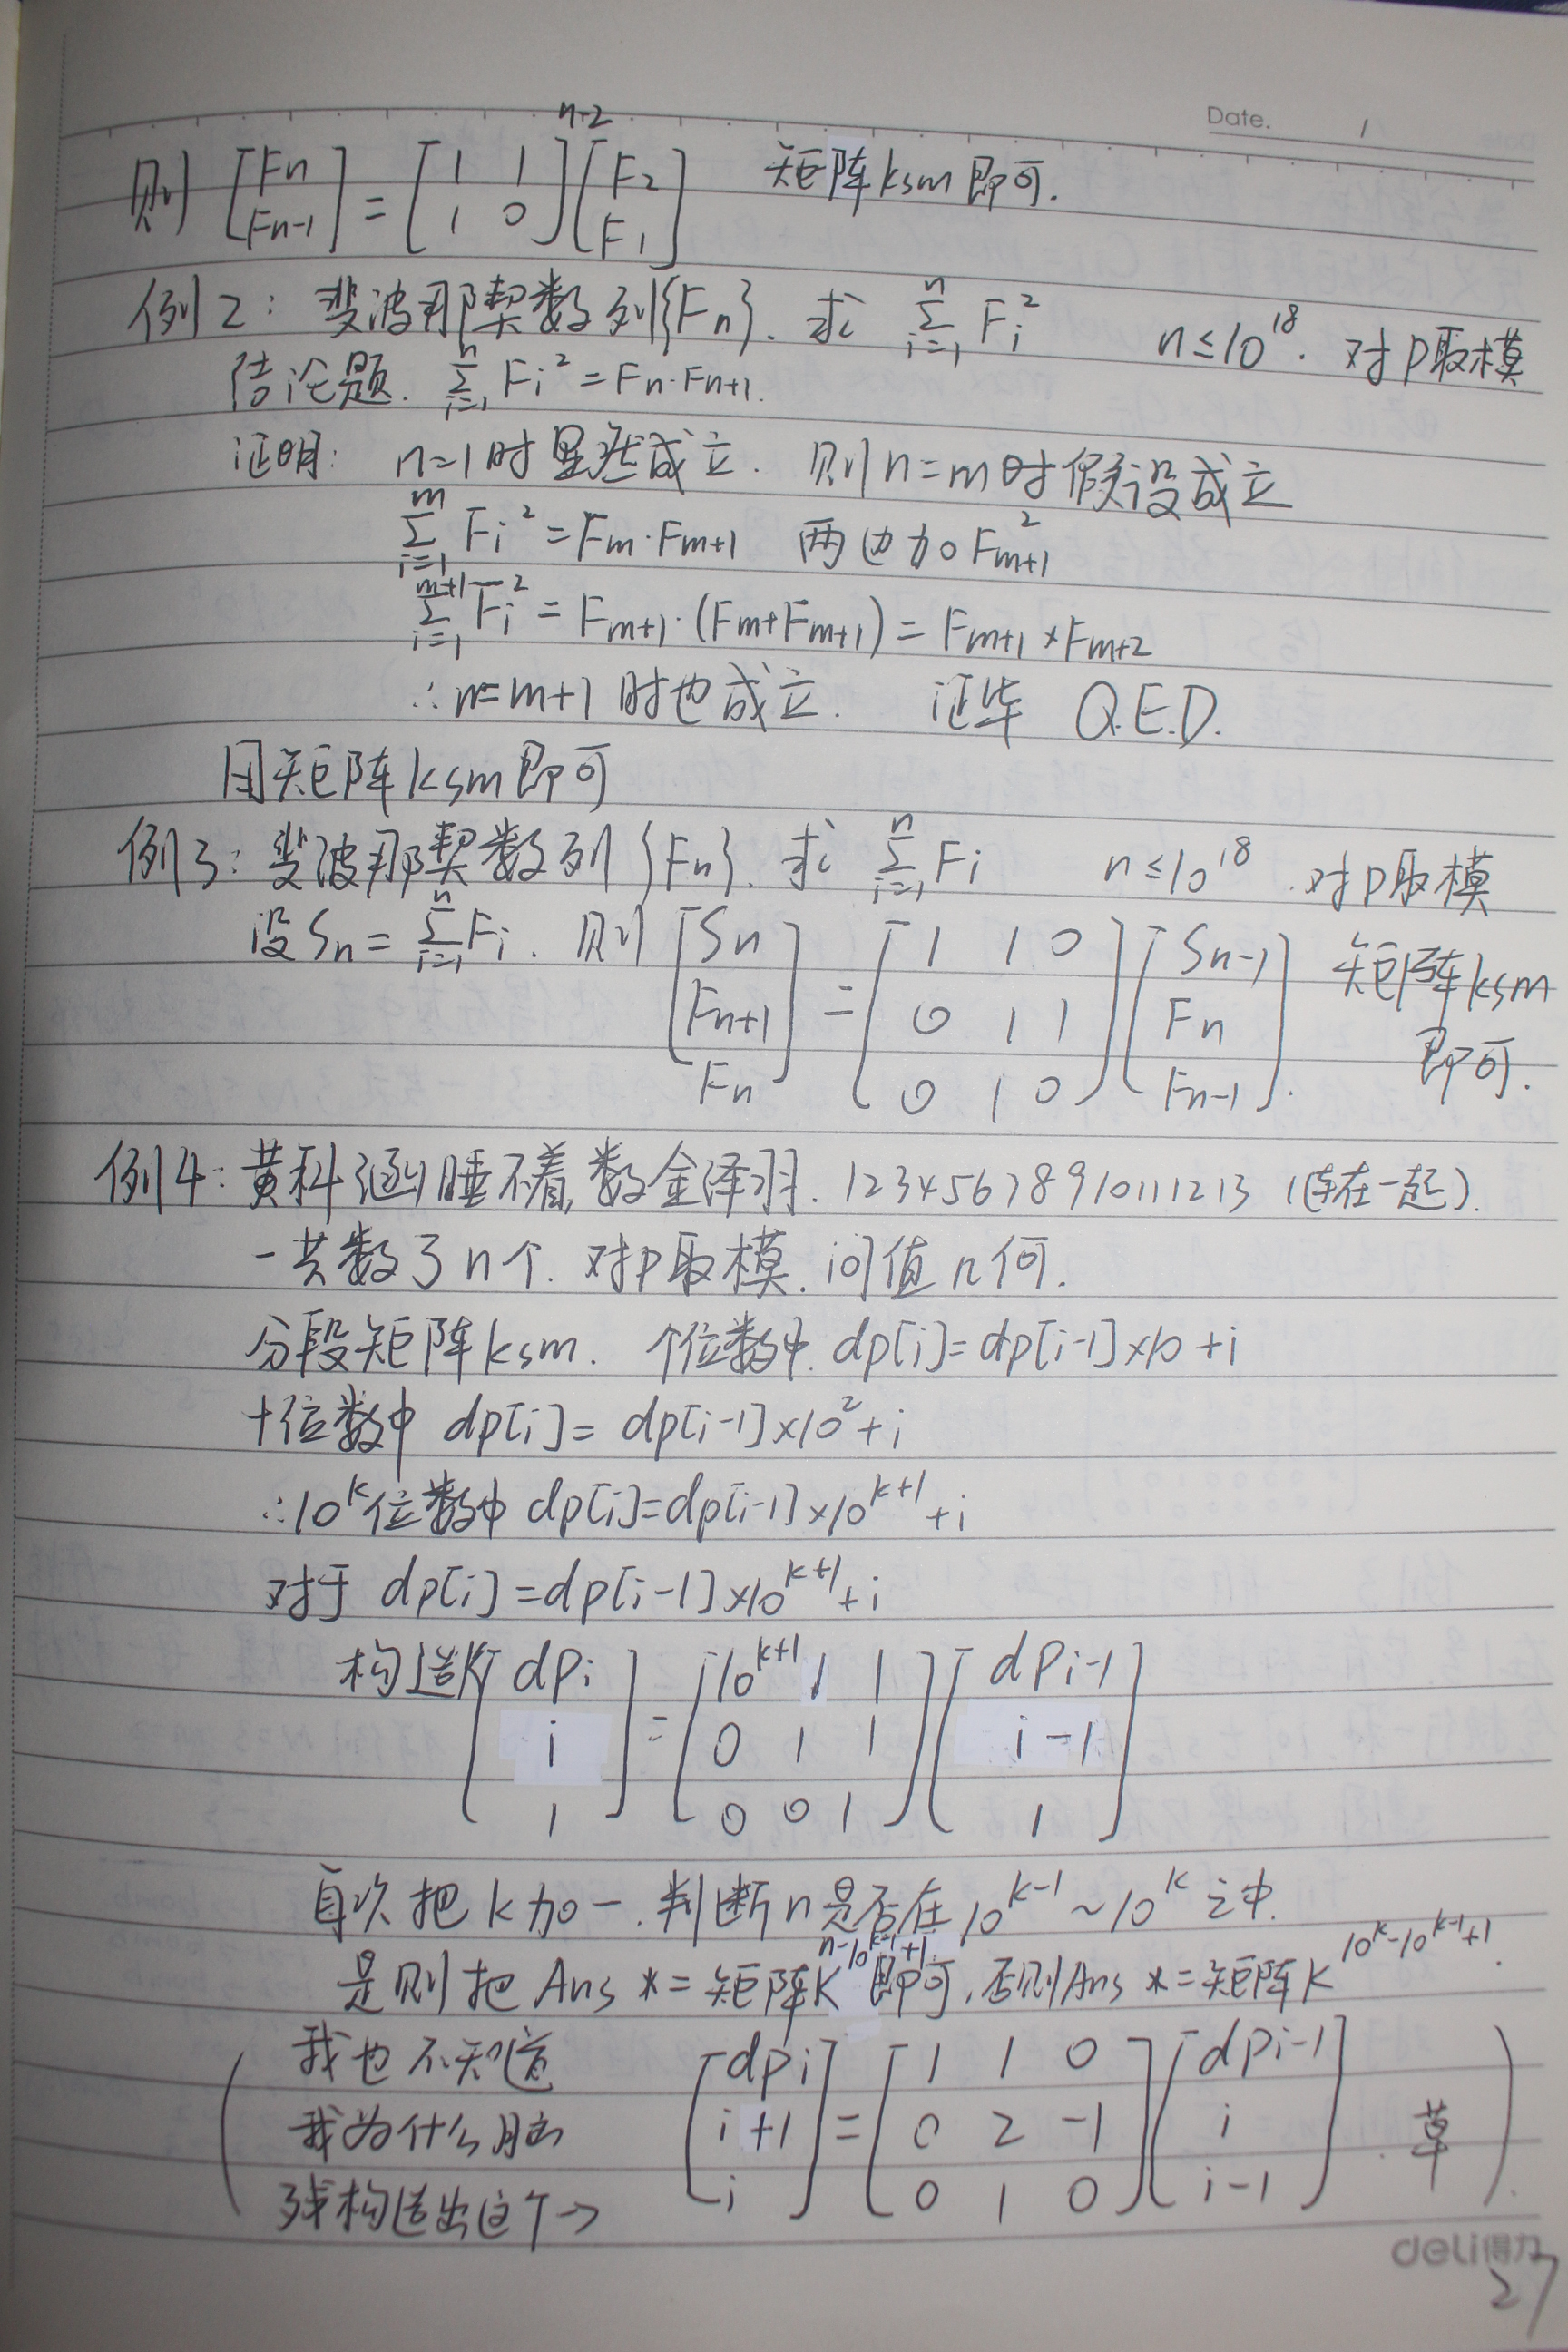 Date. /
则 [Fn Fn-1] = [1 1 1 0]^n-2 [F2 F1] 矩阵ksm即可.
例2: 斐波那契数列{Fn}. 求 Σ_{i=1}^{n} Fi² n≤10^18. 对p取模
结论题. Σ_{i=1}^{n} Fi² = Fn·Fn+1.
证明: n=1时显然成立. 则n=m时假设成立
Σ_{i=1}^{m} Fi² = Fm·Fm+1 两边加Fm+1²
Σ_{i=1}^{m+1} Fi² = Fm+1·(Fm+Fm+1) = Fm+1×Fm+2
∴n=m+1时也成立. 证毕 Q.E.D.
用矩阵ksm即可
例3: 斐波那契数列{Fn}. 求 Σ_{i=1}^{n} Fi n≤10^18. 对p取模
设Sn = Σ_{i=1}^{n} Fi. 则
[Sn Fn+1 Fn] = [1 1 0 0 1 1 0 1 0] [Sn-1 Fn Fn-1]. 矩阵ksm
即可.
例4: 黄科涵睡不着,数金泽羽. 12345678910111213 (连在一起).
一共数了n个. 对p取模. 问值几何.
分段矩阵ksm. 个位数中. dp[i]=dp[i-1]×10+i
十位数中 dp[i]= dp[i-1]×10²+i
∴10^k位数中 dp[i]=dp[i-1]×10^k+1+i
对于 dp[i]=dp[i-1]×10^k+1+i
构造K [dpi i 1] = [10^k+1 1 1 0 1 1 0 0 1] [dpi-1 i-1 1]
每次把k加一. 判断n是否在10^k-1~10^k之中.
是则把Ans *= 矩阵K^n-10^k-1+1即可, 否则Ans *= 矩阵K^10^k-10^k-1+1.
(我也不知道
我为什么脑
残构造出这个→
[dpi i+1 i] = [1 1 0 0 2 -1 0 1 0] [dpi-1 i i-1]. 草)
deli得力
27